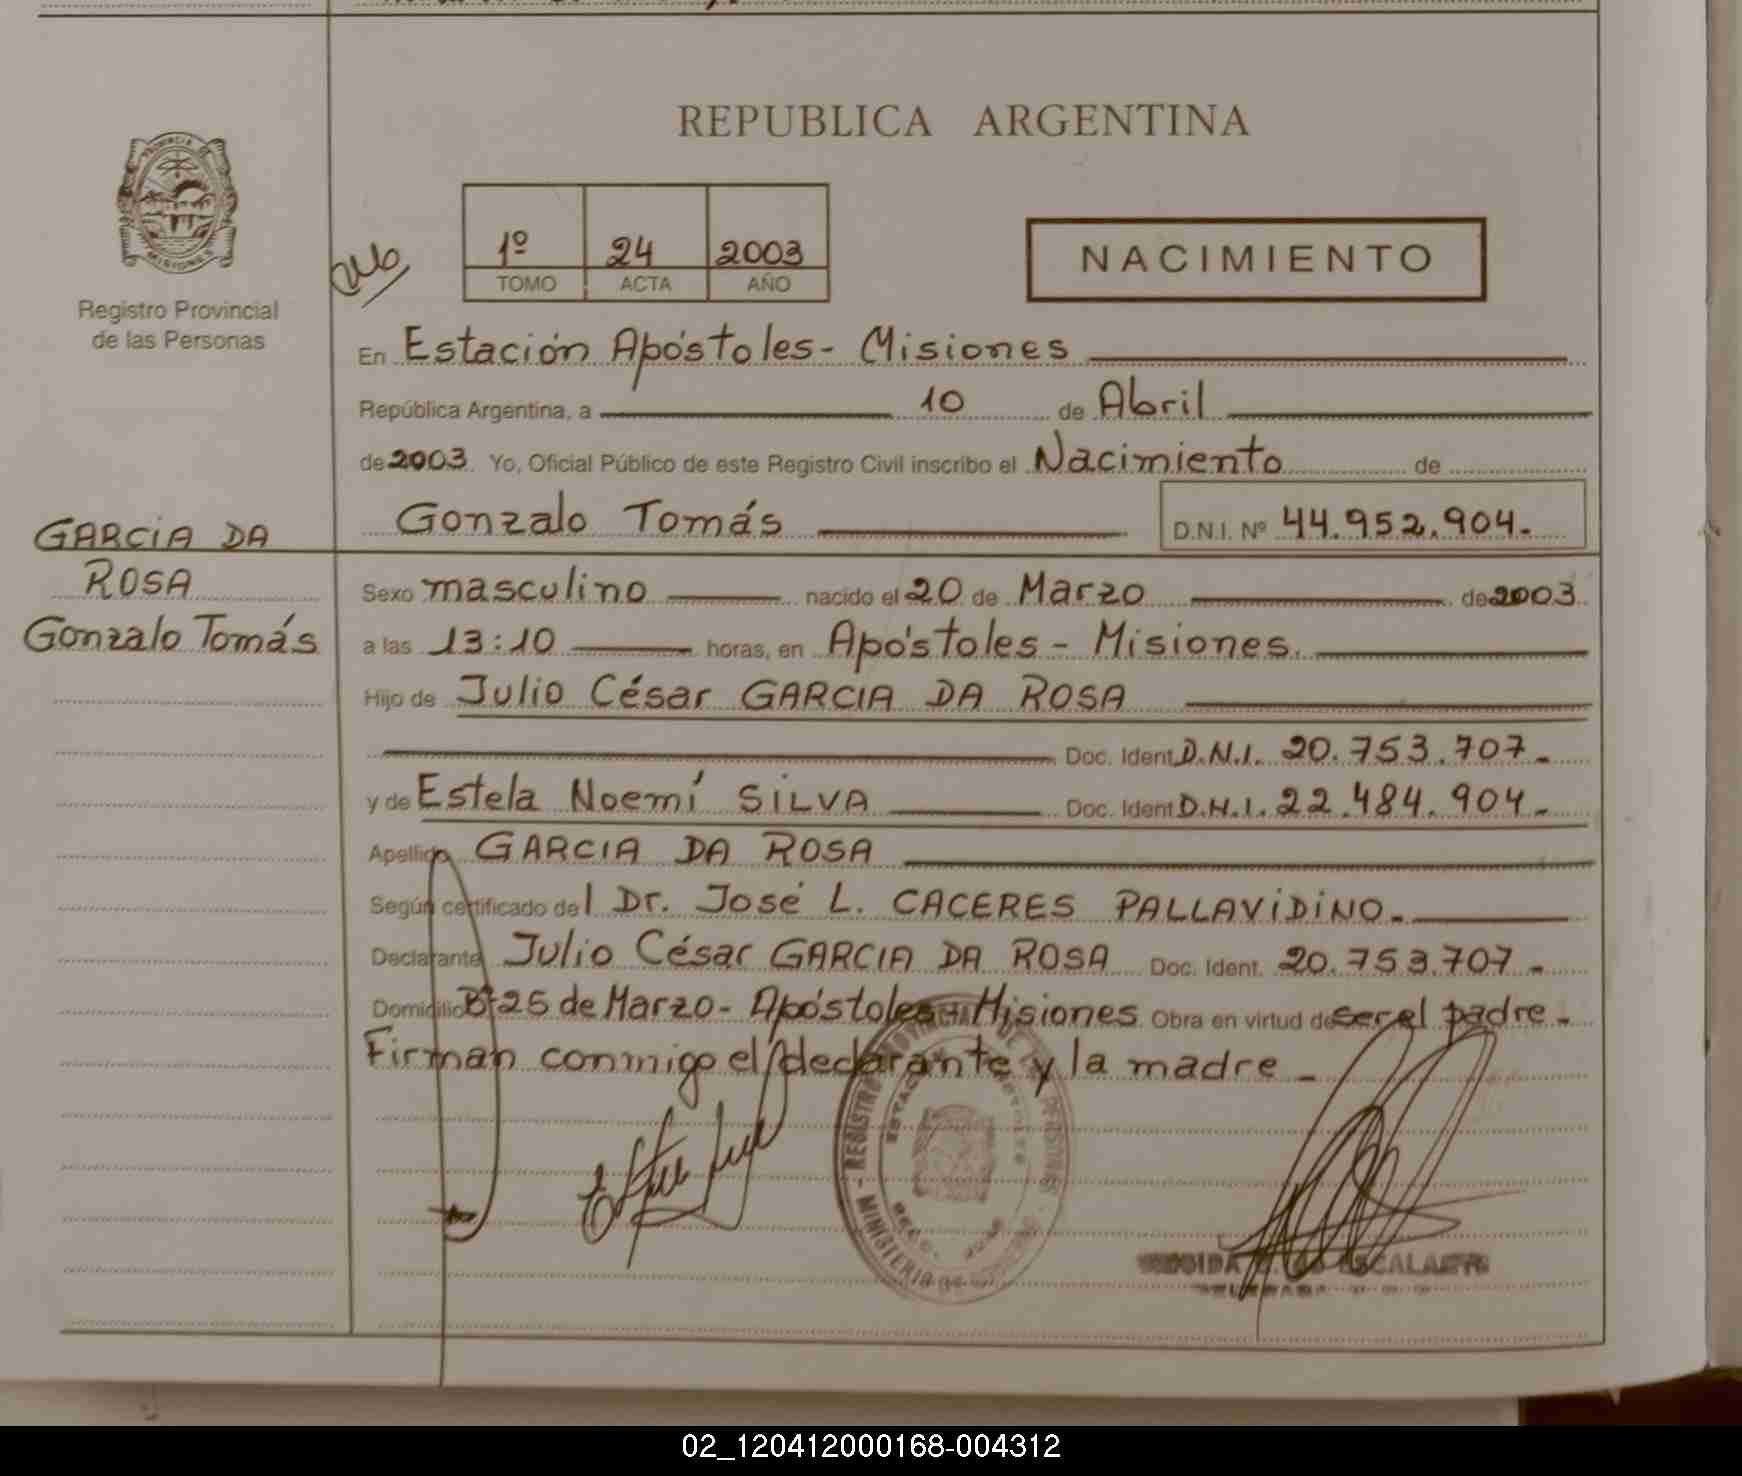 REPUBLICA ARGENTINA
PROVINCIA DE MISIONES
Registro Provincial
de las Personas
1º 24 2003
TOMO ACTA AÑO
NACIMIENTO
En Estación Apóstoles - Misiones
República Argentina, a 10 de Abril
de 2003. Yo, Oficial Público de este Registro Civil inscribo el Nacimiento de
Gonzalo Tomás D.N.I. Nº 44.952.904.
GARCIA DA
ROSA
Gonzalo Tomás
Sexo masculino nacido el 20 de Marzo de 2003
a las 13:10 horas, en Apóstoles - Misiones.
Hijo de Julio César GARCIA DA ROSA
Doc. Ident D.N.I. 20.753.707.-
y de Estela Noemí SILVA Doc. Ident D.N.I. 22.484.904-
Apellido GARCIA DA ROSA
Según certificado del Dr. José L. CACERES PALLAVIDINO.
Declarante Julio César GARCIA DA ROSA Doc. Ident. 20.753.707-
Domicilio Bº 25 de Marzo - Apóstoles - Misiones Obra en virtud de ser el padre -
Firman conmigo el declarante y la madre -
02_120412000168-004312